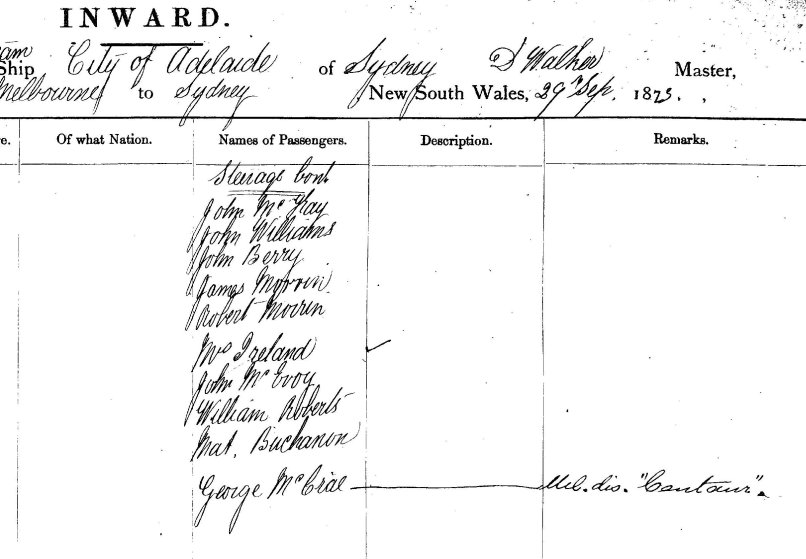 INWARD.
Ship City of Adelaide of Sydney D Walker Master,
Melbourne to Sydney New South Wales, 29 Sep. 1873.
Of what Nation. Names of Passengers. Description. Remarks.
Steerage Cont
John McKay
John Williams
John Berry
James Morrin
Robert Morrin
Mrs Ireland
John McEvoy
William Roberts
Mat. Buchanon
George McCrae dis. "Centaur".